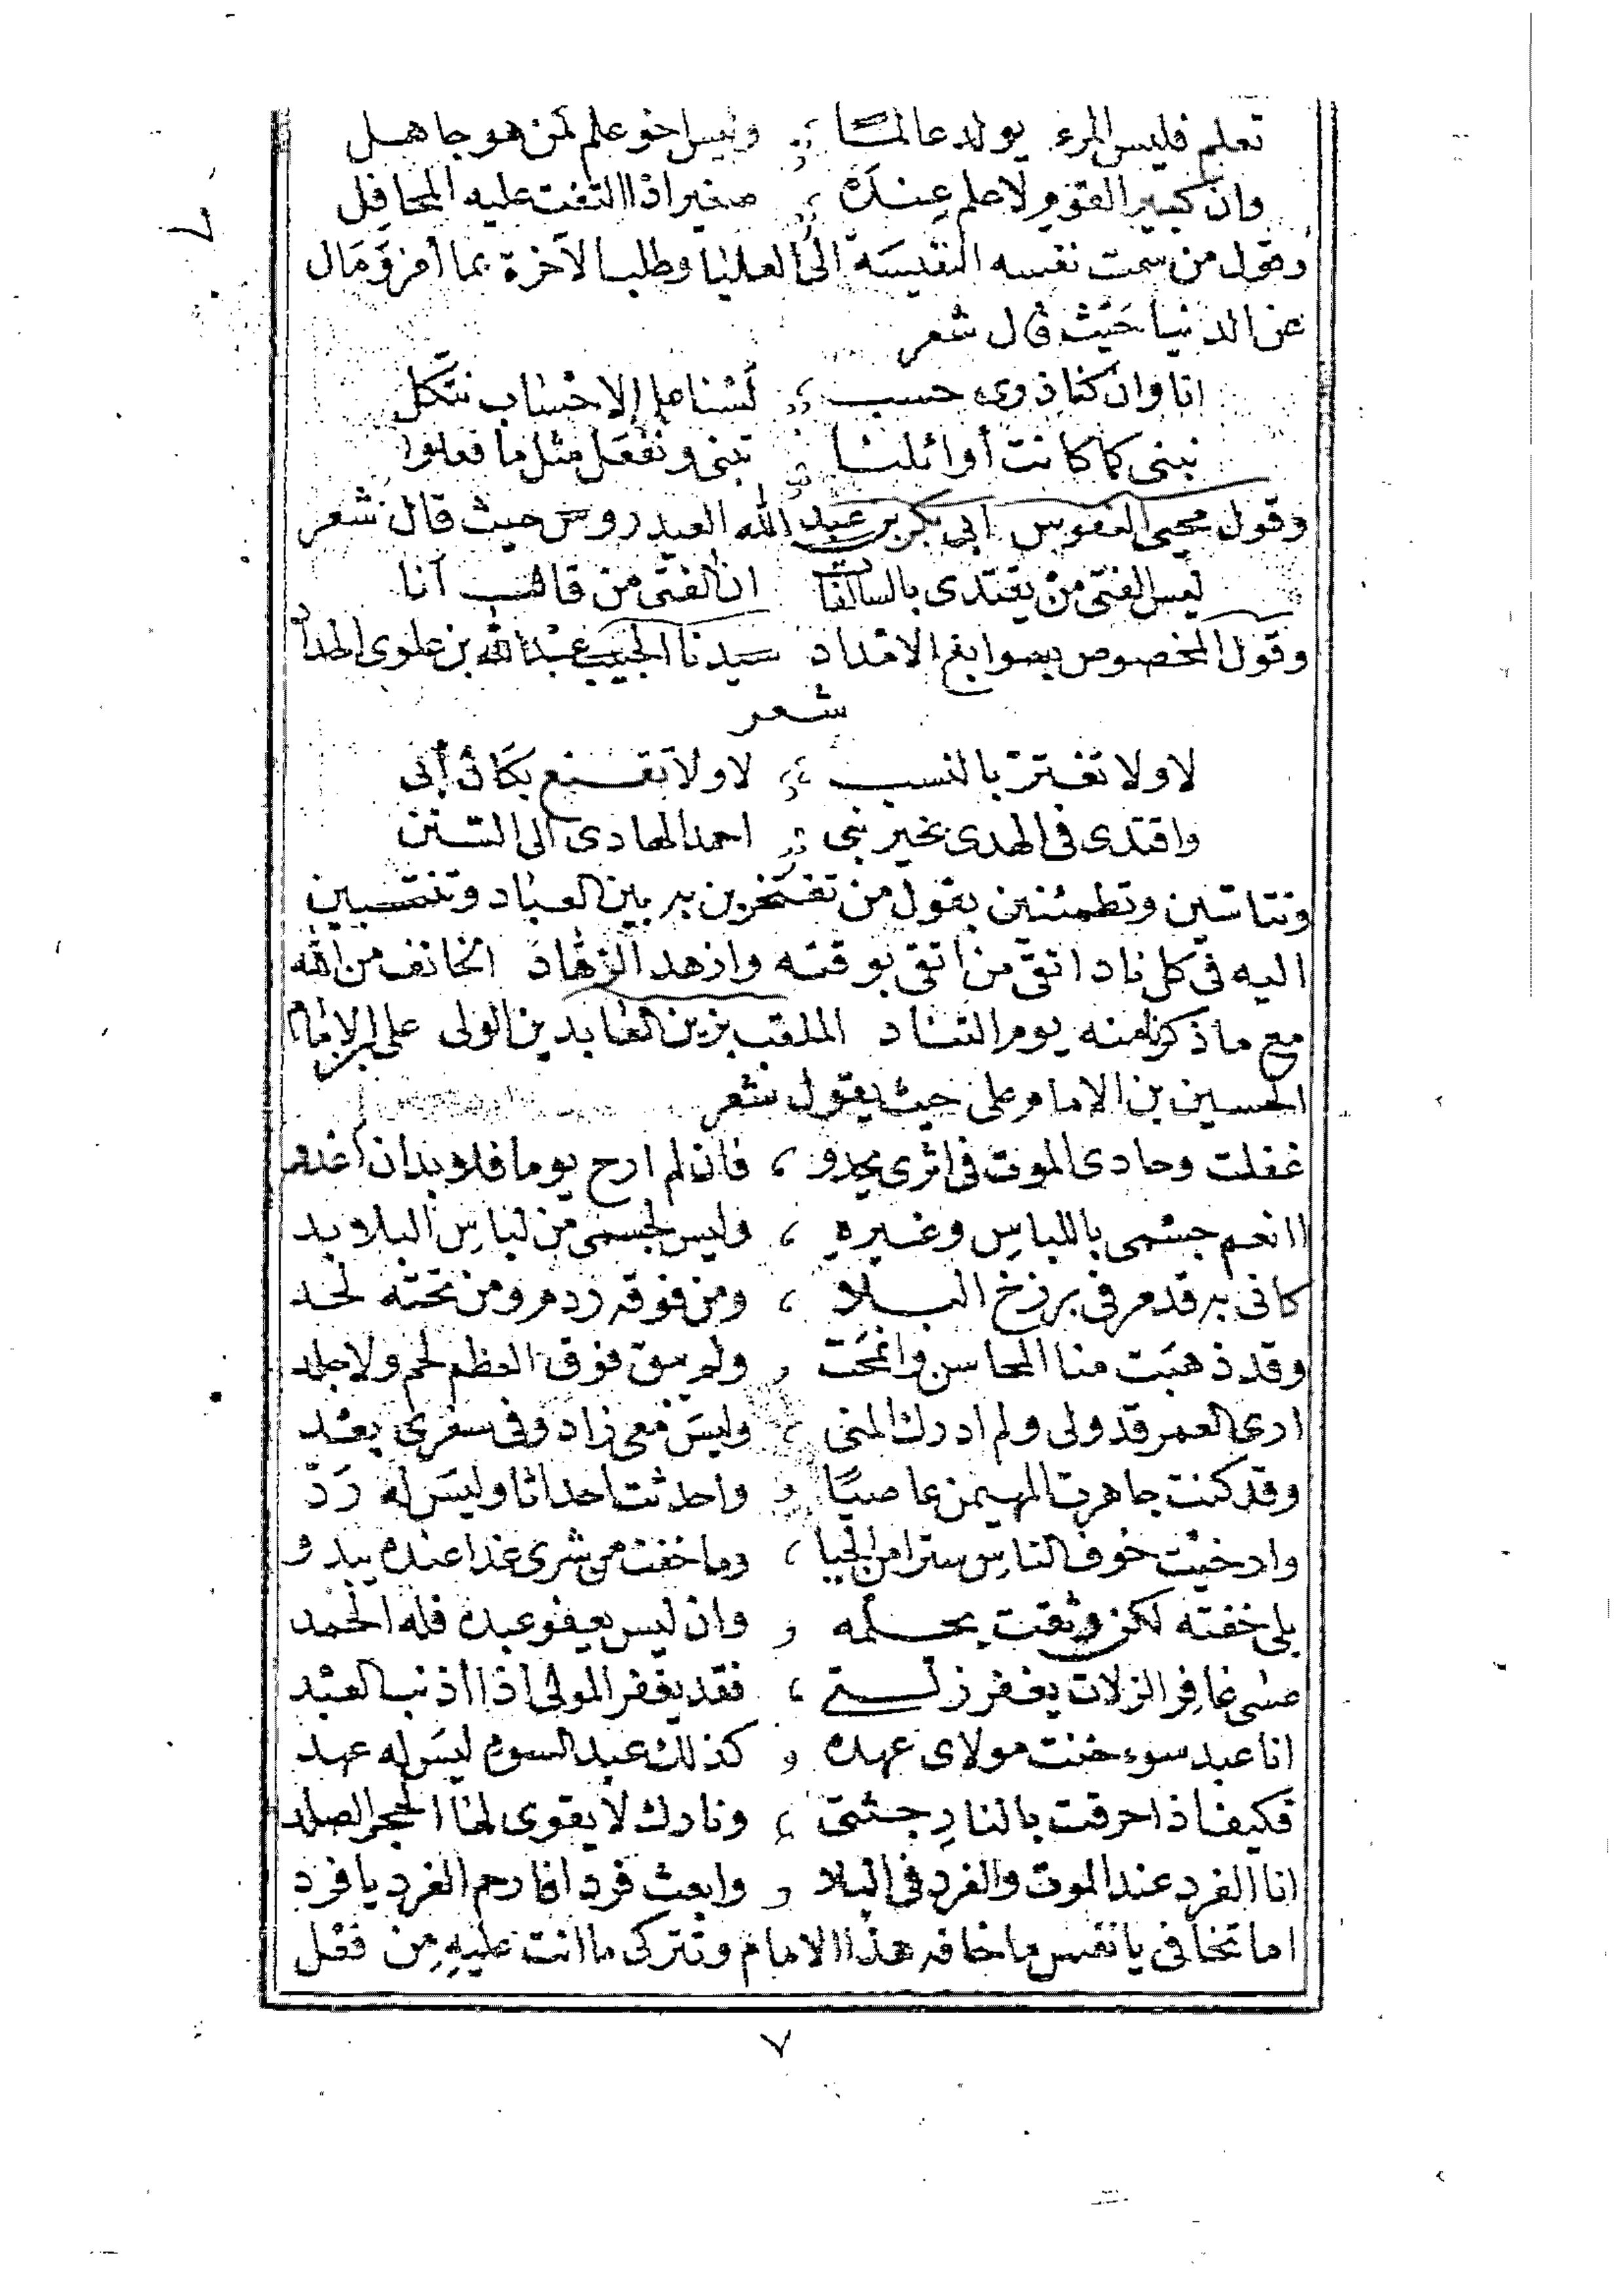 تعلم فليس المرء يولد عالمًا ؛ وليس اخو علم كمن هو جاهل
وان كبير القوم لا علم عنده ، صغير اذا التفت عليه المحافل
وقول من سمت نفسه النفيسة الى العليا وطلب الآخرة بما أمر ومال
عن الدنيا حيث قال شعر
انا وان كنا ذوى حسب ؛ لسنا على الاحساب نتكل
نبنى كما كانت أوائلنا ، تبنى ونفعل مثل ما فعلوا
وقول محيى النفوس ابى بكر بن عبد الله العيدروس حيث قال شعر
ليس الفتى من يقتدى بالسالفات ان الفتى من قال انا
وقول المخصوص بسوابغ الامداد سيدنا الحبيب عبد الله بن علوى الحداد
شعر
لا ولا تغتر بالنسب ؛ لا ولا تقنع بكان أبى
واقتدى فى الهدى بخير نبى ؛ احمد الهادى الى السنن
وتتأسين وتطمئنين بقول من تفتخرين به بين العباد وتنتسبين
اليه فى كل ناد اتقى من اتقى بوقته وازهد الزهاد الخائف من الله
مع ما ذكر امنه يوم التناد الملقب بزين العابدين الولى على بن الامام
الحسين بن الامام على حيث يقول شعر
غفلت وحادى الموت فى اثرى يحدو ، فان لم ارح يوما فلا بد ان أغدو
اانعم جسمى باللباس وغيره ، وليس لجسمى من لباس البلا بد
كانى به قد مر فى برزخ البلا ، ومن فوقه ردم ومن تحته لحد
وقد ذهبت منا المحاسن وانمحت ، ولم يبق فوق العظم لحم ولا جلد
ارى العمر قد ولى ولم ادرك المنى ، وليس معى زاد وفى سفرى بعد
وقد كنت جاهرت المهيمن عاصيًا ، واحدثت احداثا وليس له رد
وارخيت خوف الناس سترا من الحيا ، وما خفت من سرى غدا عنده يبدو
بلى خفته لكن وثقت بحلمه ، وان ليس يعفو عبده فله الحمد
عسى غافر الزلات يغفر زلتى ، فقد يغفر المولى اذا أذنب العبد
انا عبد سوء خنت مولاى عهده ، كذلك عبد السوء ليس له عهد
فكيف اذا حرقت بالنار جثتى ، ونارك لا يقوى لها الحجر الصلد
انا الفرد عند الموت والفرد فى البلا ، وابعث فردا فارحم الفرد يا فرد
اما تخافى يا نفس ما خافه هذا الامام وتتركى ما انت عليه من فعل
٧
٧